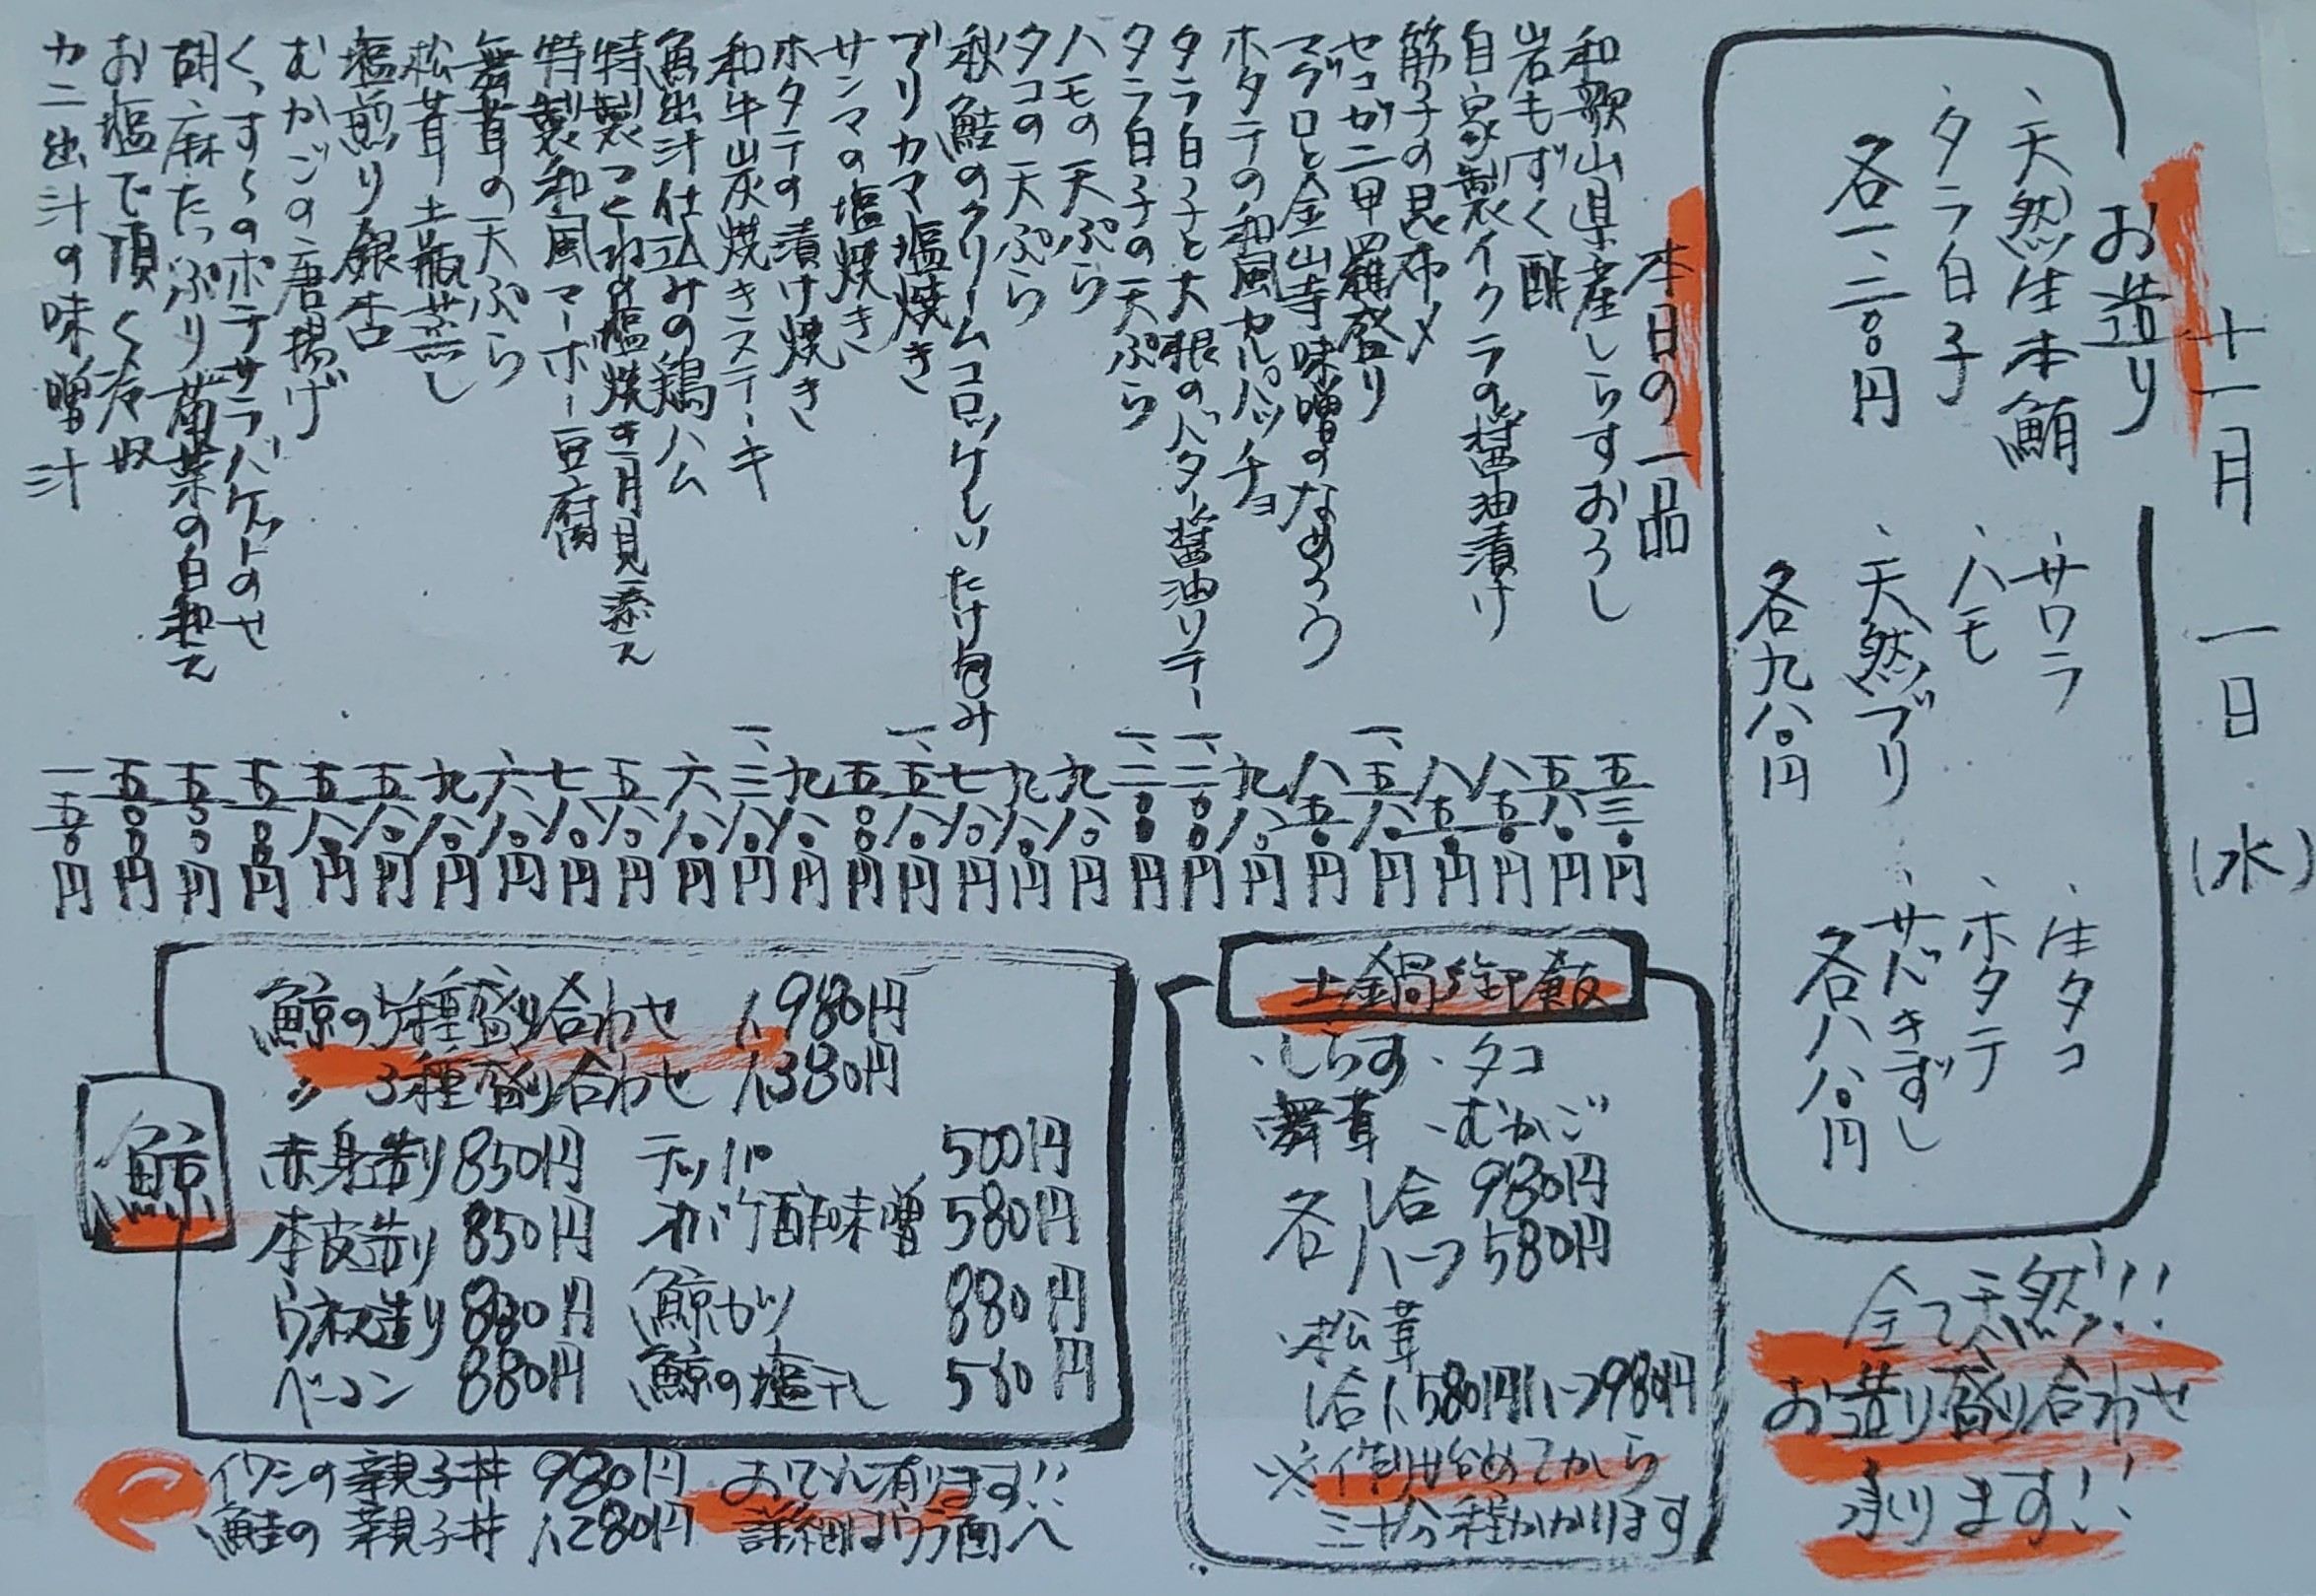 十一月 一日 (水)
お造り
、天然生本鮪
、タラ白子
各一、二〇〇円
、サワラ
、ハモ
、天然ブリ
各九八〇円
、生タコ
、ホタテ
、サバきずし
各八八〇円
全て天然!!!
お造り盛り合わせ
承ります!!
本日の一品
和歌山県産しらすおろし 五三〇円
岩もずく酢 五八〇円
自家製イクラの醤油漬け 八五〇円
筋子の昆布〆 八五〇円
セコガニ甲羅盛り 一、五八〇円
マグロと金山寺味噌のなめろう 八五〇円
ホタテの和風カルパッチョ 九八〇円
タラ白子と大根のバター醤油ソテー 一、二〇〇円
タラ白子の天ぷら 一、二〇〇円
ハモの天ぷら 九八〇円
タコの天ぷら 九八〇円
秋鮭のクリームコロッケしいたけ包み 七八〇円
ブリカマ塩焼き 一、五八〇円
サンマの塩焼き 五〇〇円
ホタテの漬け焼き 九八〇円
和牛炭焼きステーキ 一、三八〇円
魚出汁仕込みの鶏ハム 六八〇円
特製つくねの塩焼き月見添え 五八〇円
特製和風マーボー豆腐 七八〇円
舞茸の天ぷら 六八〇円
松茸土瓶蒸し 九八〇円
塩煎り銀杏 五八〇円
むかごの唐揚げ 五八〇円
くっすんのポテサラバケットのせ 五五〇円
胡麻たっぷり菊菜の白和え 五五〇円
お塩で頂く冷奴 五〇〇円
カニ出汁の味噌汁 一五〇円
土鍋御飯
、しらす 、タコ
、舞茸 、むかご
各 1合 980円
各 ハーフ 580円
、松茸
1合1,580円ハーフ980円
※作り始めてから
三十分程かかります
鯨
鯨の5種盛り合わせ 1,980円
〃 3種盛り合わせ 1,380円
赤身造り 850円 テッパ 500円
本皮造り 850円 オバケ酢味噌 580円
ウネス造り 880円 鯨カツ 880円
ベーコン 880円 鯨の塩干し 580円
イワシの親子丼 980円
鮭の親子丼 1,280円
おでん有ります!!
詳細はウラ面へ